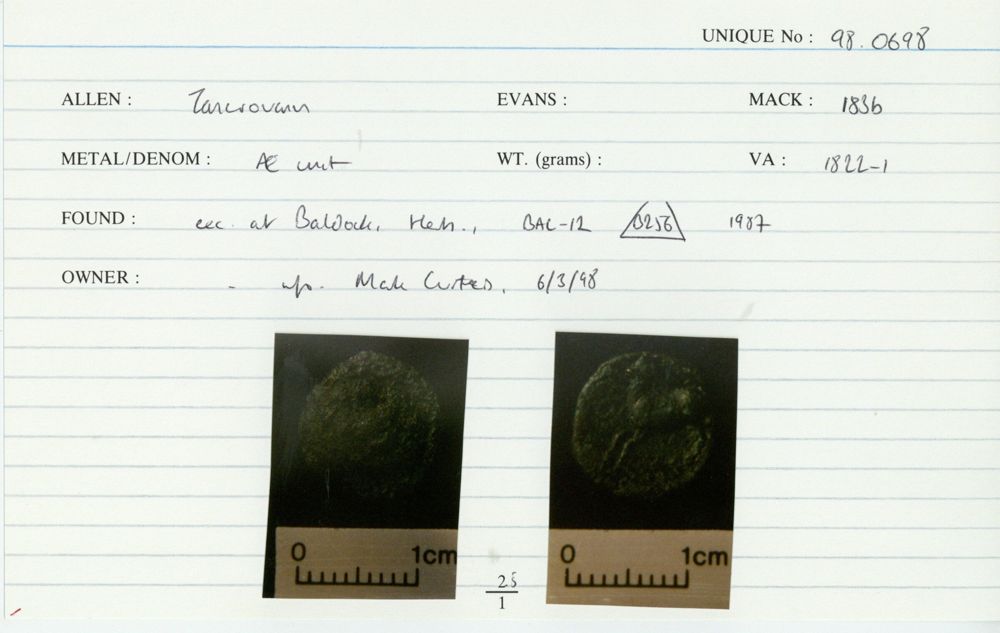 UNIQUE No : 98.0698
ALLEN : Tasciovanus EVANS : MACK : 183b
METAL/DENOM : Æ unit WT. (grams) : VA : 1822-1
FOUND : exc. at Baldock, Herts., BAL-12 0256 1987
OWNER : - Mark Curteis, 6/3/98
0 1cm
0 1cm
25
1